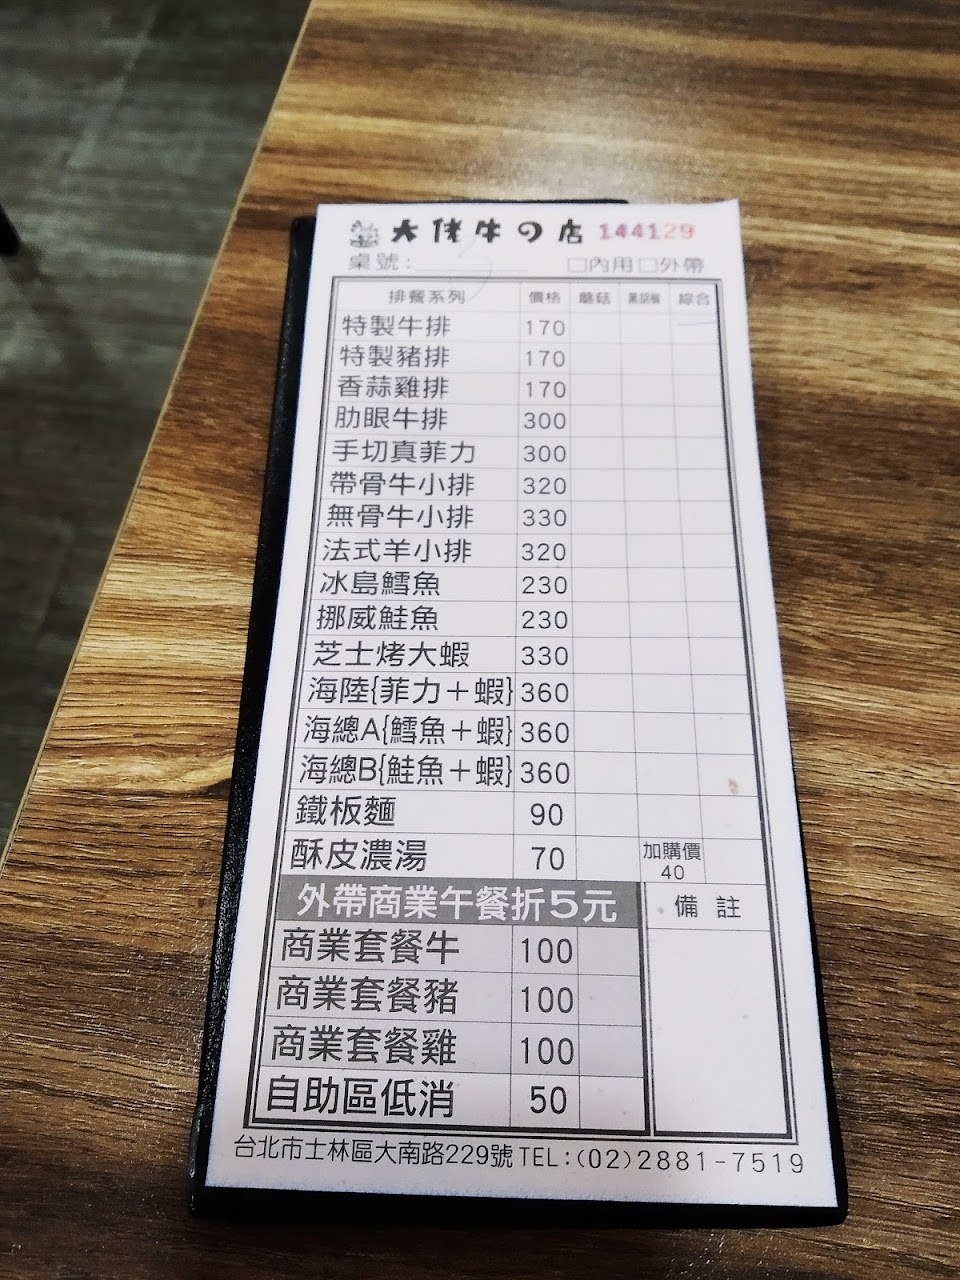 大佬牛の店 144129
桌號: □內用 □外帶
排餐系列 價格 蘑菇 黑胡椒 綜合
特製牛排 170
特製豬排 170
香蒜雞排 170
肋眼牛排 300
手切真菲力 300
帶骨牛小排 320
無骨牛小排 330
法式羊小排 320
冰島鱈魚 230
挪威鮭魚 230
芝士烤大蝦 330
海陸{菲力+蝦} 360
海總A{鱈魚+蝦} 360
海總B{鮭魚+蝦} 360
鐵板麵 90
酥皮濃湯 70 加購價 40
外帶商業午餐折5元 備註
商業套餐牛 100
商業套餐豬 100
商業套餐雞 100
自助區低消 50
台北市士林區大南路229號 TEL:(02)2881-7519